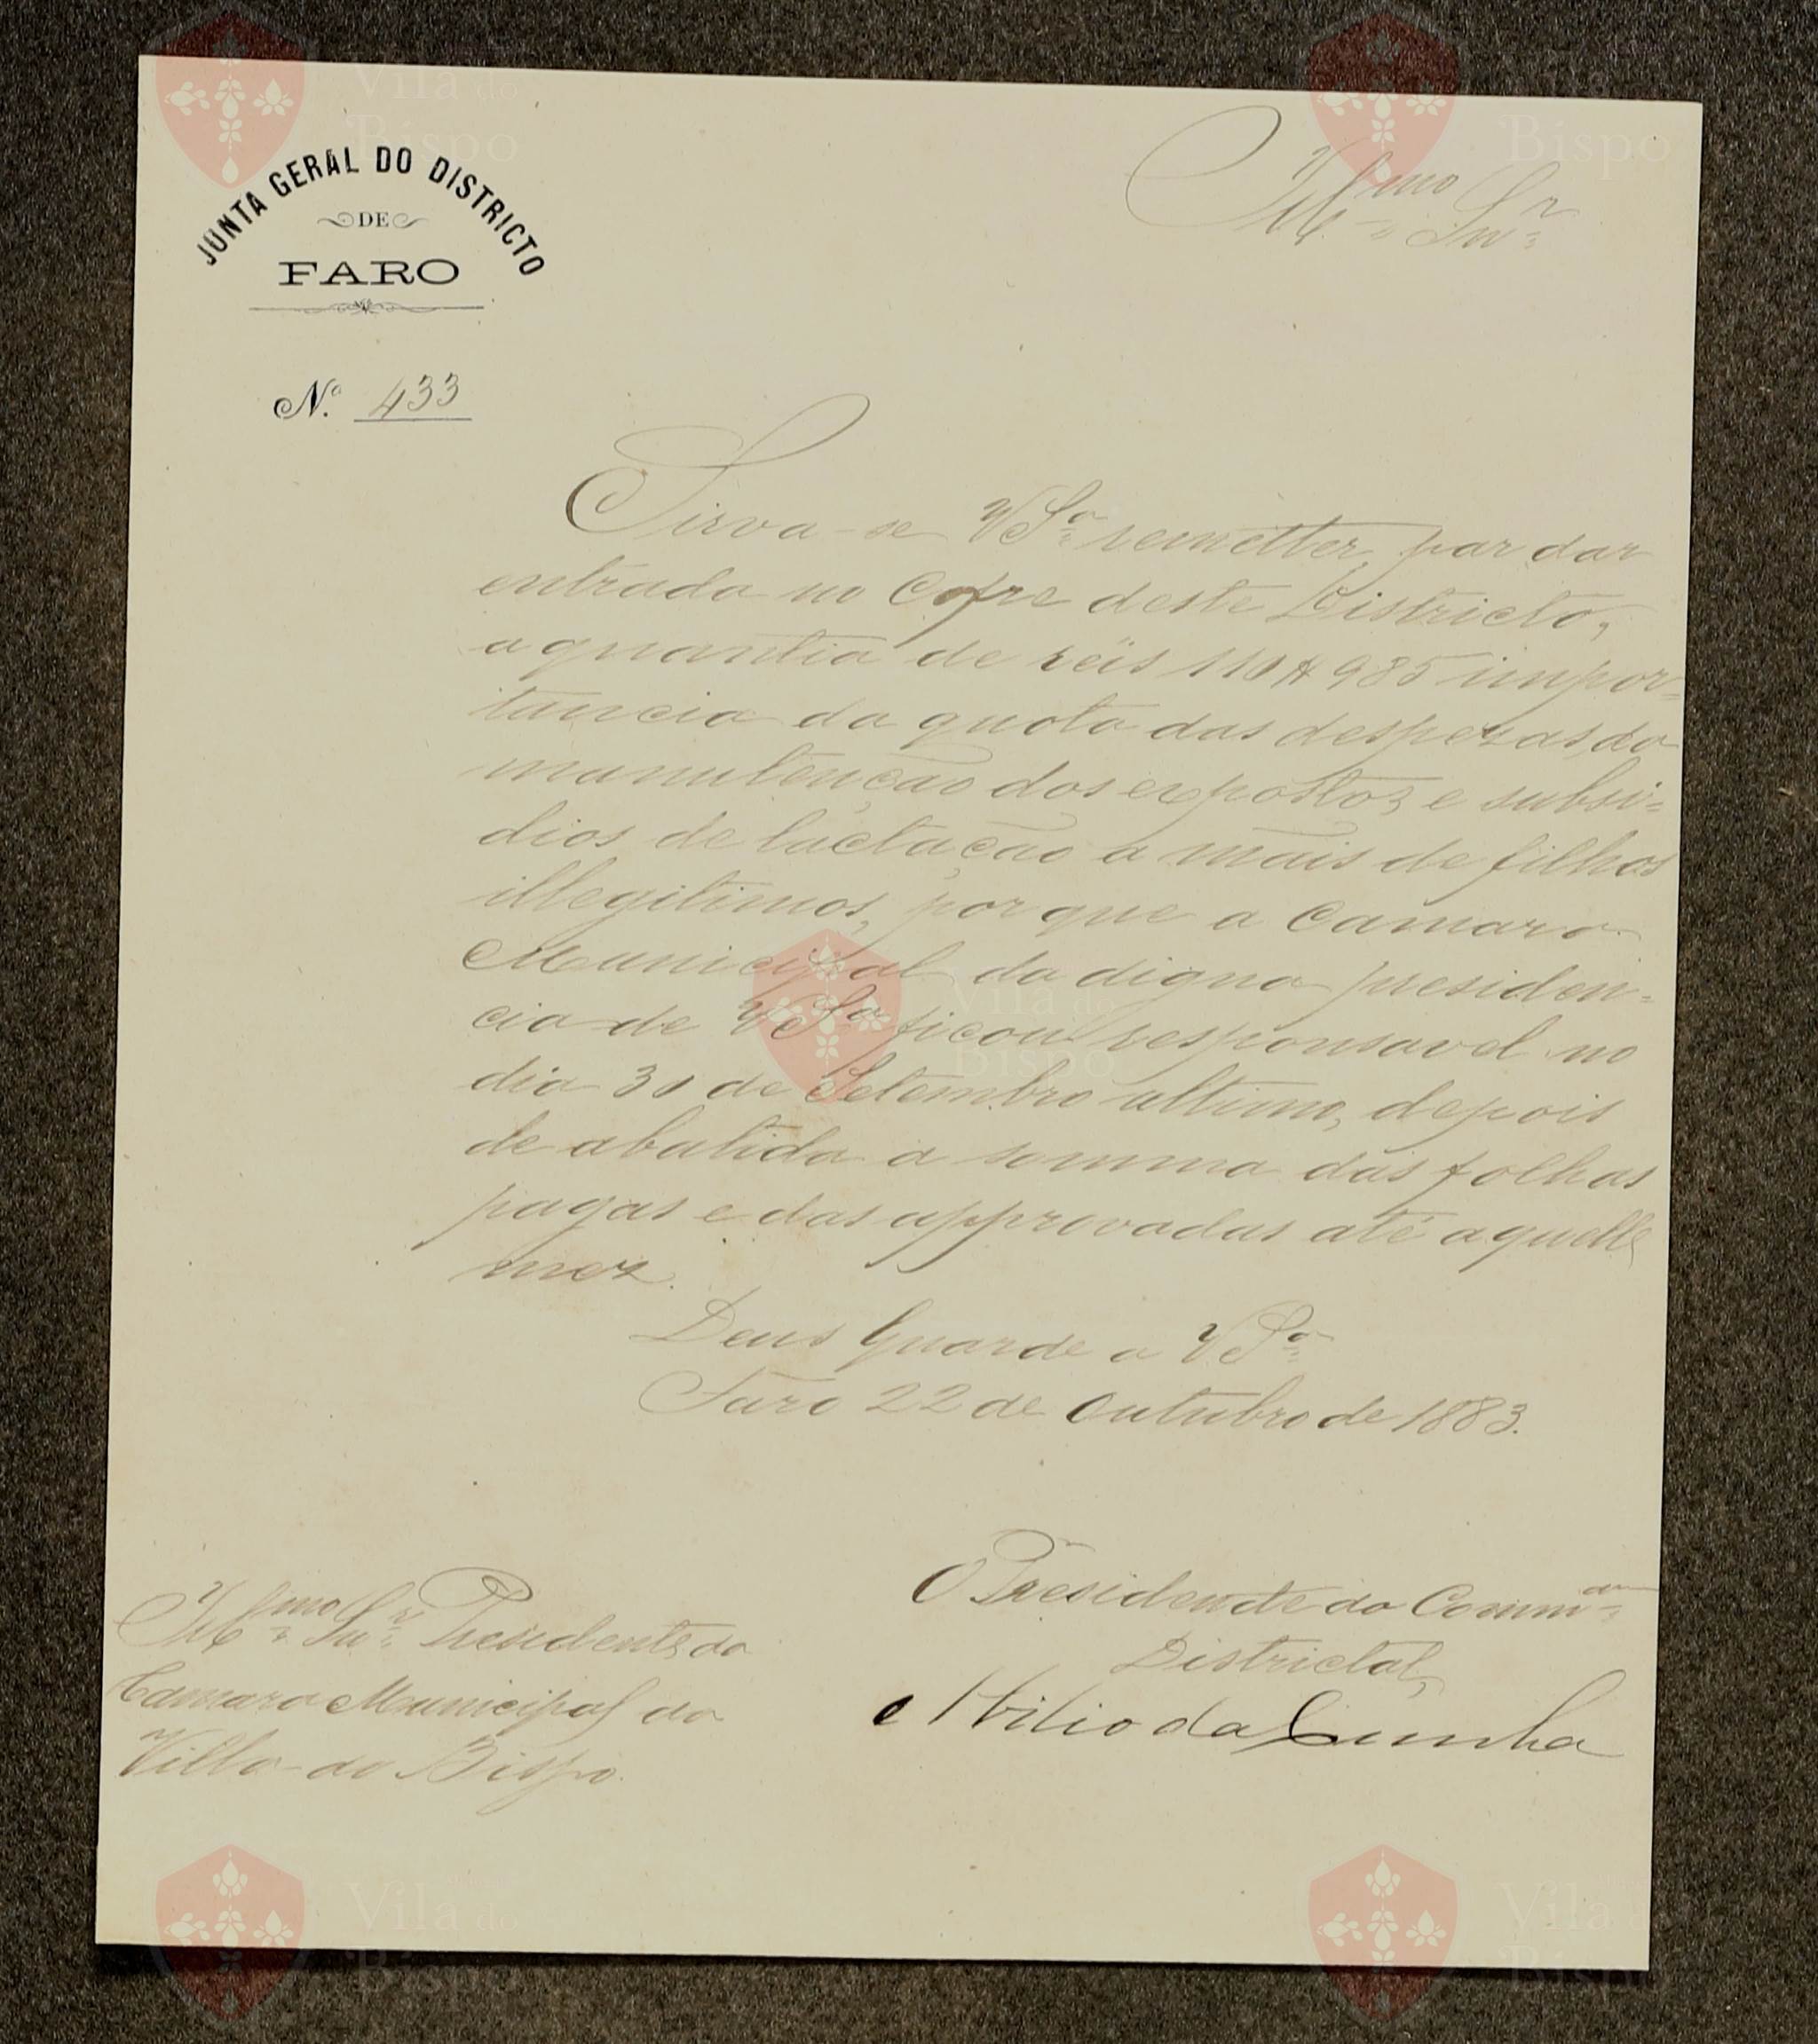 JUNTA GERAL DO DISTRICTO
DE
FARO
N.º 433
Ill.mo Snr.
Sirva-se V S.ª remetter, par dar
entrada no Cofre deste Districto,
a quantia de réis 110$985 impor-
tancia da quota das despezas da
manutenção dos expostos, e subsi-
dios de lactação a mães de filhos
illegitimos, por que a Camara
Municipal da digna presiden-
cia de V S.ª ficou responsavel no
dia 30 de Setembro ultimo, depois
de abatida a somma das folhas
pagas e das approvadas até aquelle
mez.
Deus Guarde a V S.ª
Faro 22 de Outubro de 1883.
O Presidente da Comm.am
Districtal,
Abilio da Cunha
Ill.mo Snr. Presidente da
Camara Municipal da
Villa do Bispo.
Vila do
Bispo